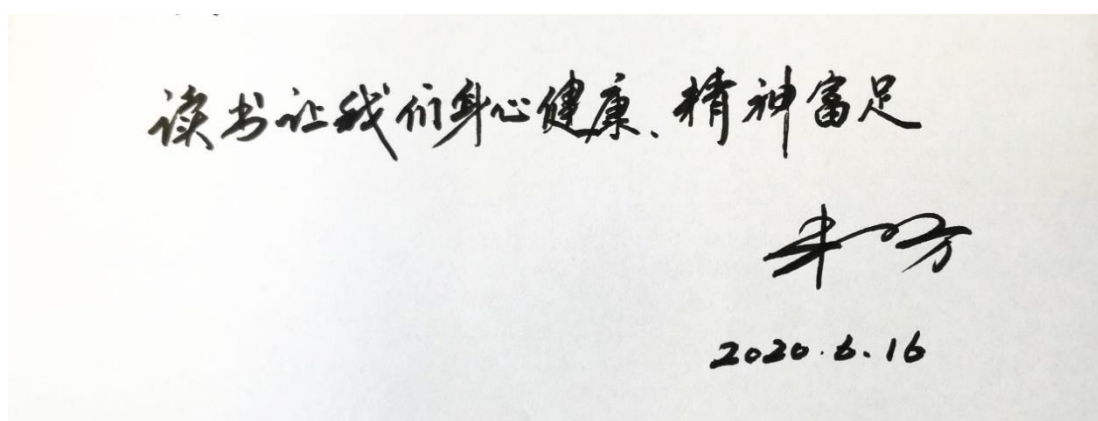 读书让我们身心健康、精神富足
2020.6.16